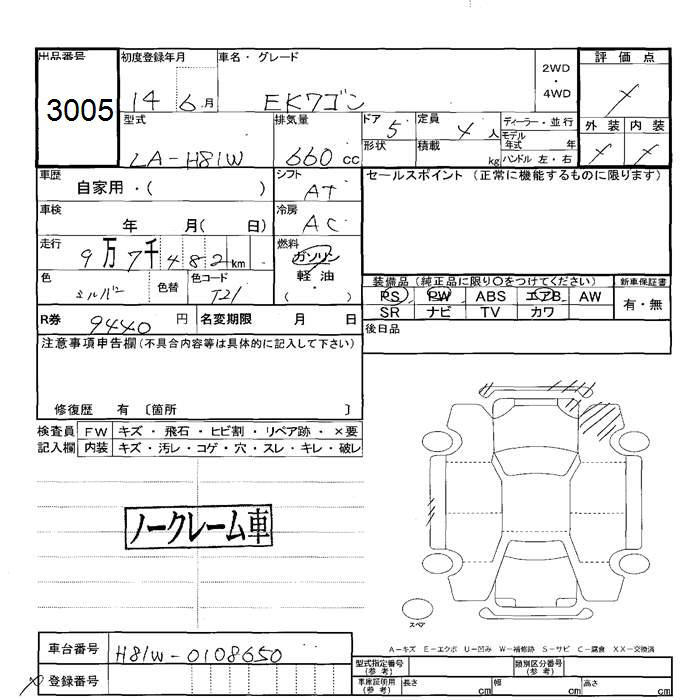 出品番号 初度登録年月 車名・グレード 2WD 評価点
3005 14 6月 EKワゴン 4WD
型式 排気量 ドア 定員 ディーラー・並行 外装 内装
LA-H81W 660cc 5 4人 モデル年式 年
形状 積載 kg ハンドル 左・右
車歴 自家用・( ) シフト AT セールスポイント (正常に機能するものに限ります)
車検 年 月( 日) 冷房 AC
走行 9万7千482km 燃料 ガソリン
軽油
( ・ )
色 シルバー 色替 色コード T21
装備品 (純正品に限り〇をつけてください) 新車保証書
PS PW ABS エアB AW 有・無
SR ナビ TV カワ
R券 9440円 名変期限 月 日 後日品
注意事項申告欄(不具合内容等は具体的に記入して下さい)
修復歴 有 〔箇所 〕
検査員 FW キズ・飛石・ヒビ割・リペア跡・×要
記入欄 内装 キズ・汚レ・コゲ・穴・スレ・キレ・破レ
ノークレーム車
スペア
A-キズ E-エクボ U-凹み W-補修跡 S-サビ C-腐食 XX-交換済
車台番号 H81W-0108650
登録番号
型式指定番号(参考) 類別区分番号(参考)
車庫証明用(参考) 長さ cm 幅 cm 高さ cm